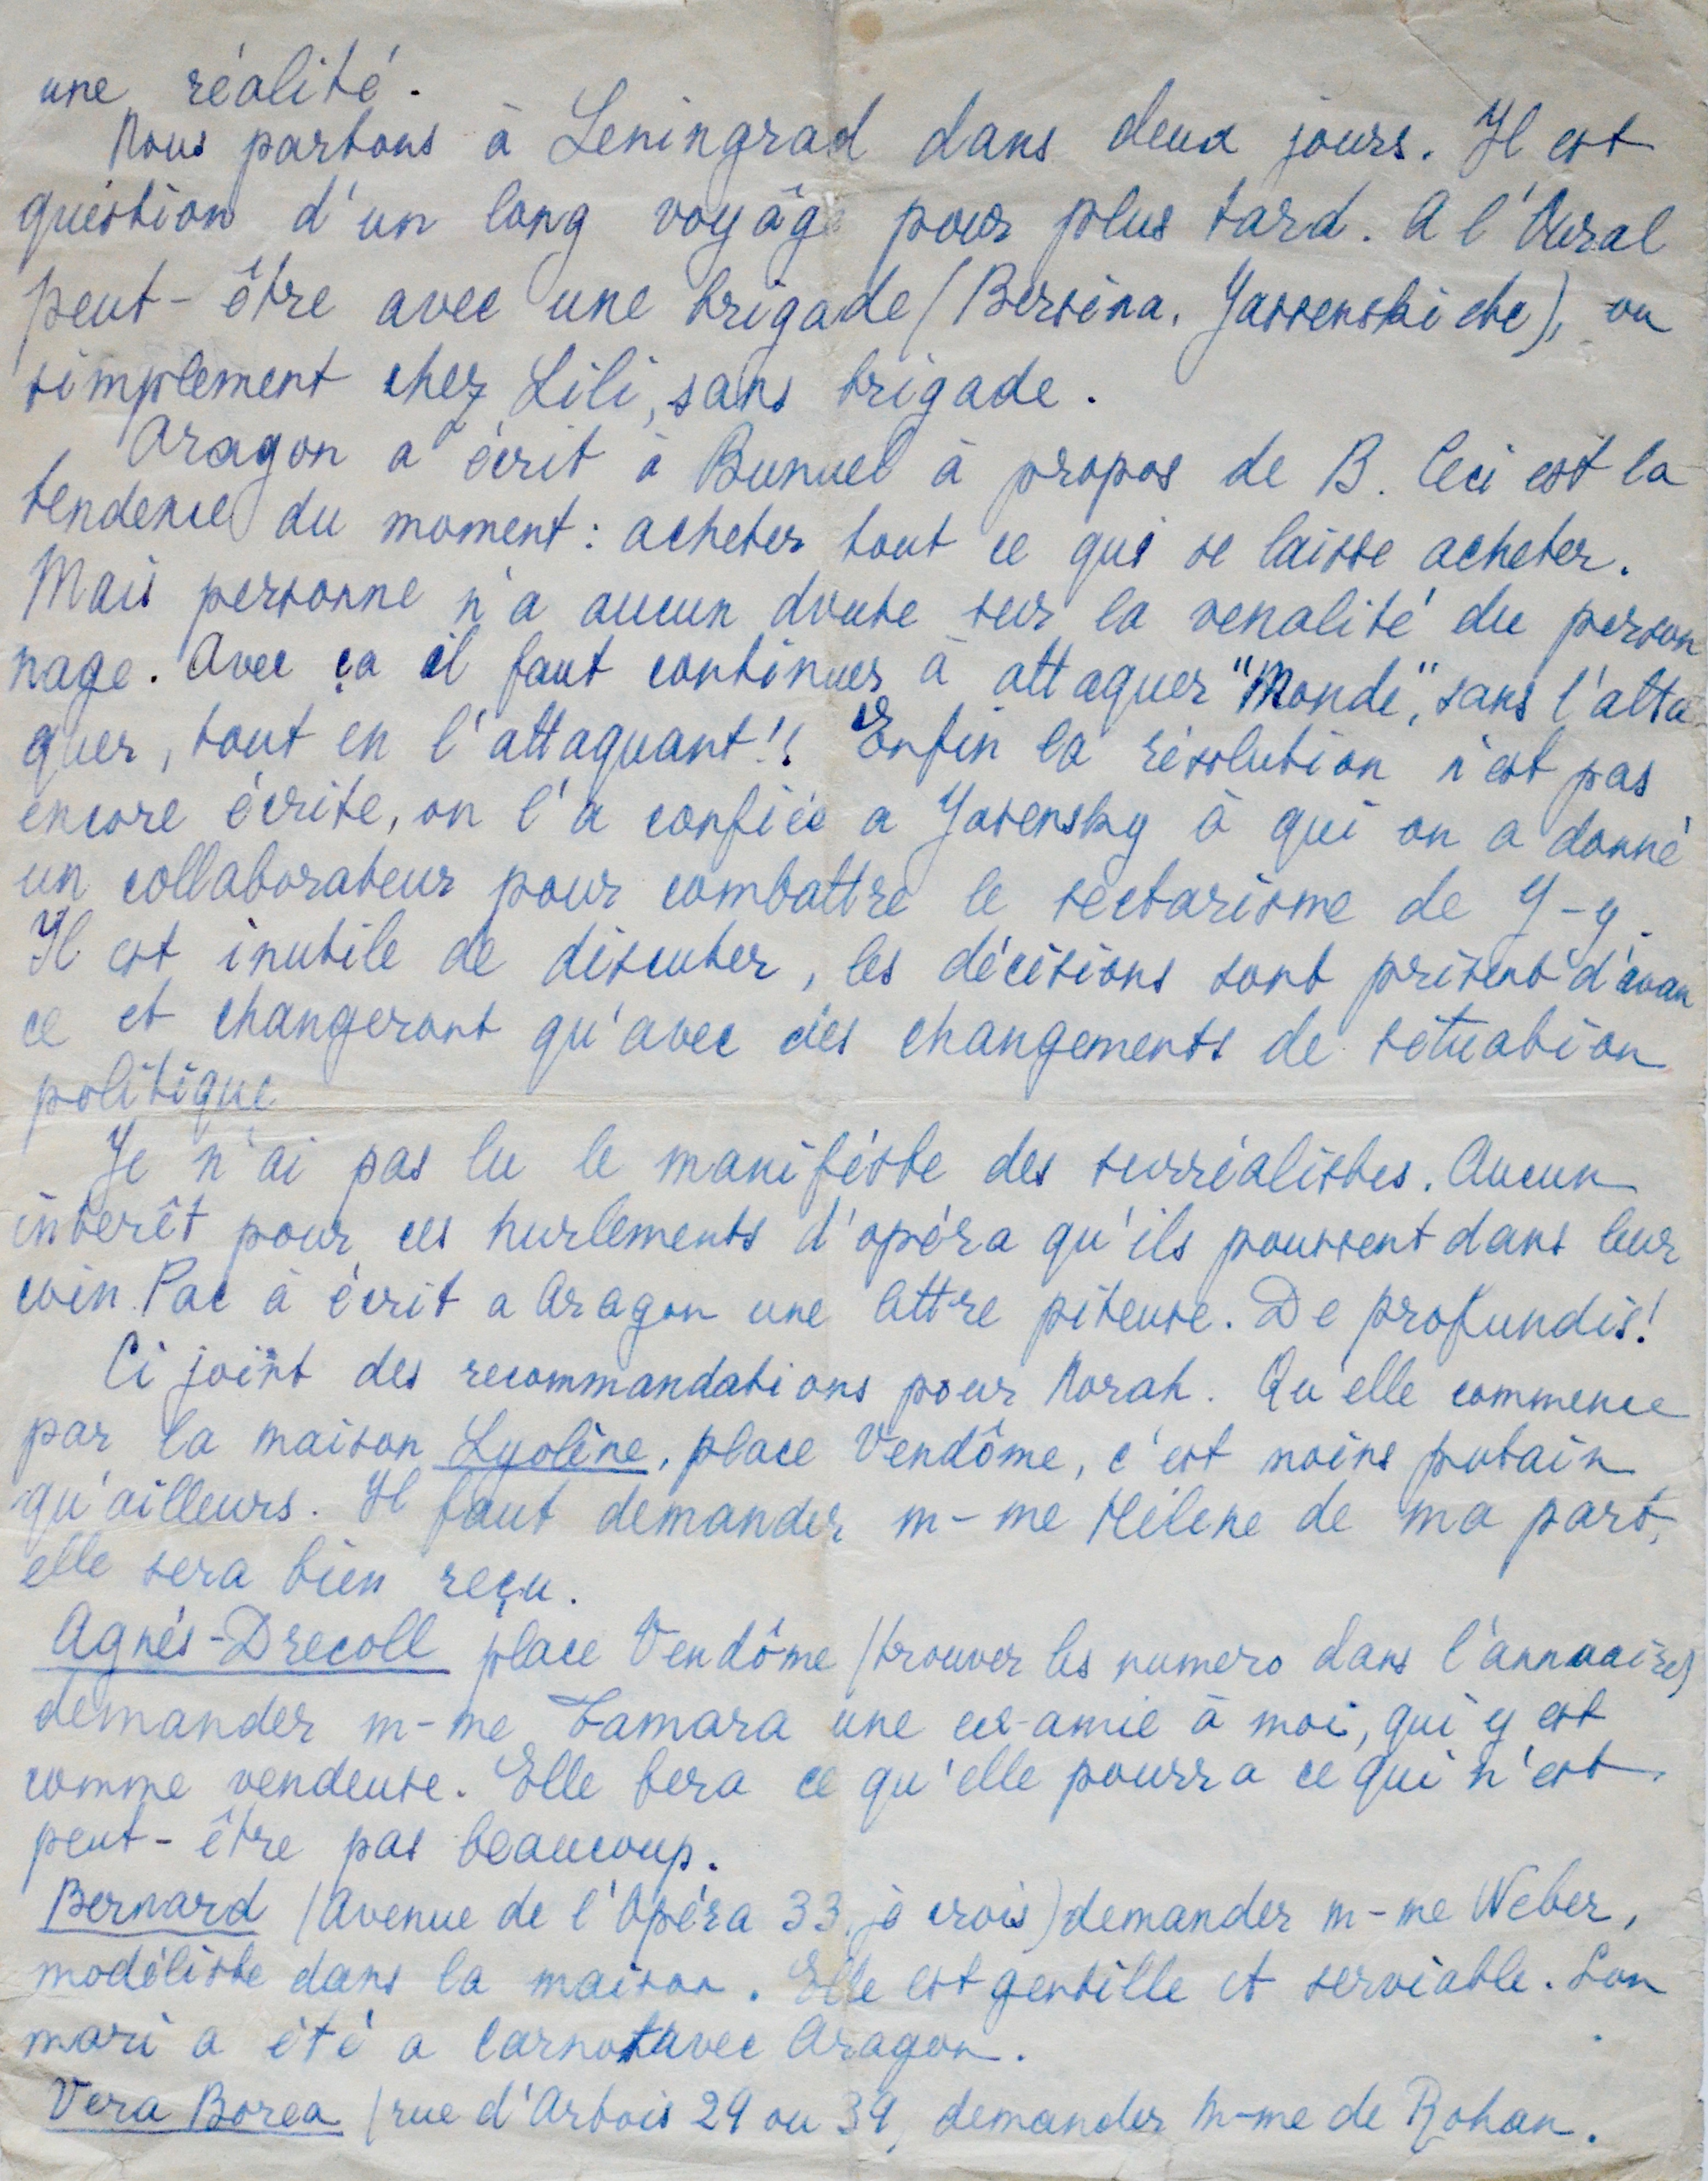 une réalité.
Nous partons à Leningrad dans deux jours. Il est
question d'un long voyâge pour plus tard. A l'Oural
peut-être avec une brigade (Bersina, Yassenski etc), ou
simplement chez Lili, sans brigade.
Aragon a écrit à Bunuel à propos de B. Ceci est la
tendence du moment : acheter tout ce qui se laisse acheter.
Mais personne n'a aucun doute sur la venalité du person
nage. Avec ça il faut continuer à attaquer "Monde", sans l'atta
quer, tout en l'attaquant!! Enfin la résolution n'est pas
encore écrite, on l'a confiée a Yasensky à qui on a donné
un collaborateur pour combattre le sectarisme de Y-y.
Il est inutile de discuter, les décisions sont prisent d'avan
ce et changeront qu'avec des changements de situation
politique
Je n'ai pas lu le maniféste des surréalistes. Aucun
interêt pour ces hurlements d'opéra qu'ils poussent dans leur
coin. Pac à écrit a Aragon une lettre piteuse. De profundis!
Ci joint des recommandations pour Norah. Qu'elle commence
par la maison Lyolène, place Vendôme, c'est moins putain
qu'ailleurs. Il faut demander m-me Hélène de ma part,
elle sera bien reçu.
Agnés-Drecoll place Vendôme (trouver les numero dans l'annuaire)
demander m-me Tamara une ex-amie à moi, qui y est
comme vendeuse. Elle fera ce qu'elle pourra ce qui n'est
peut-être pas beaucoup.
Bernard (Avenue de l'Opéra 33. je crois) demander m-me Weber,
modéliste dans la maison. Elle est gentille et serviable. Son
mari a été a Carnot avec Aragon.
Vera Borea (rue d'Artois 29 ou 39, demander m-me de Rohan.